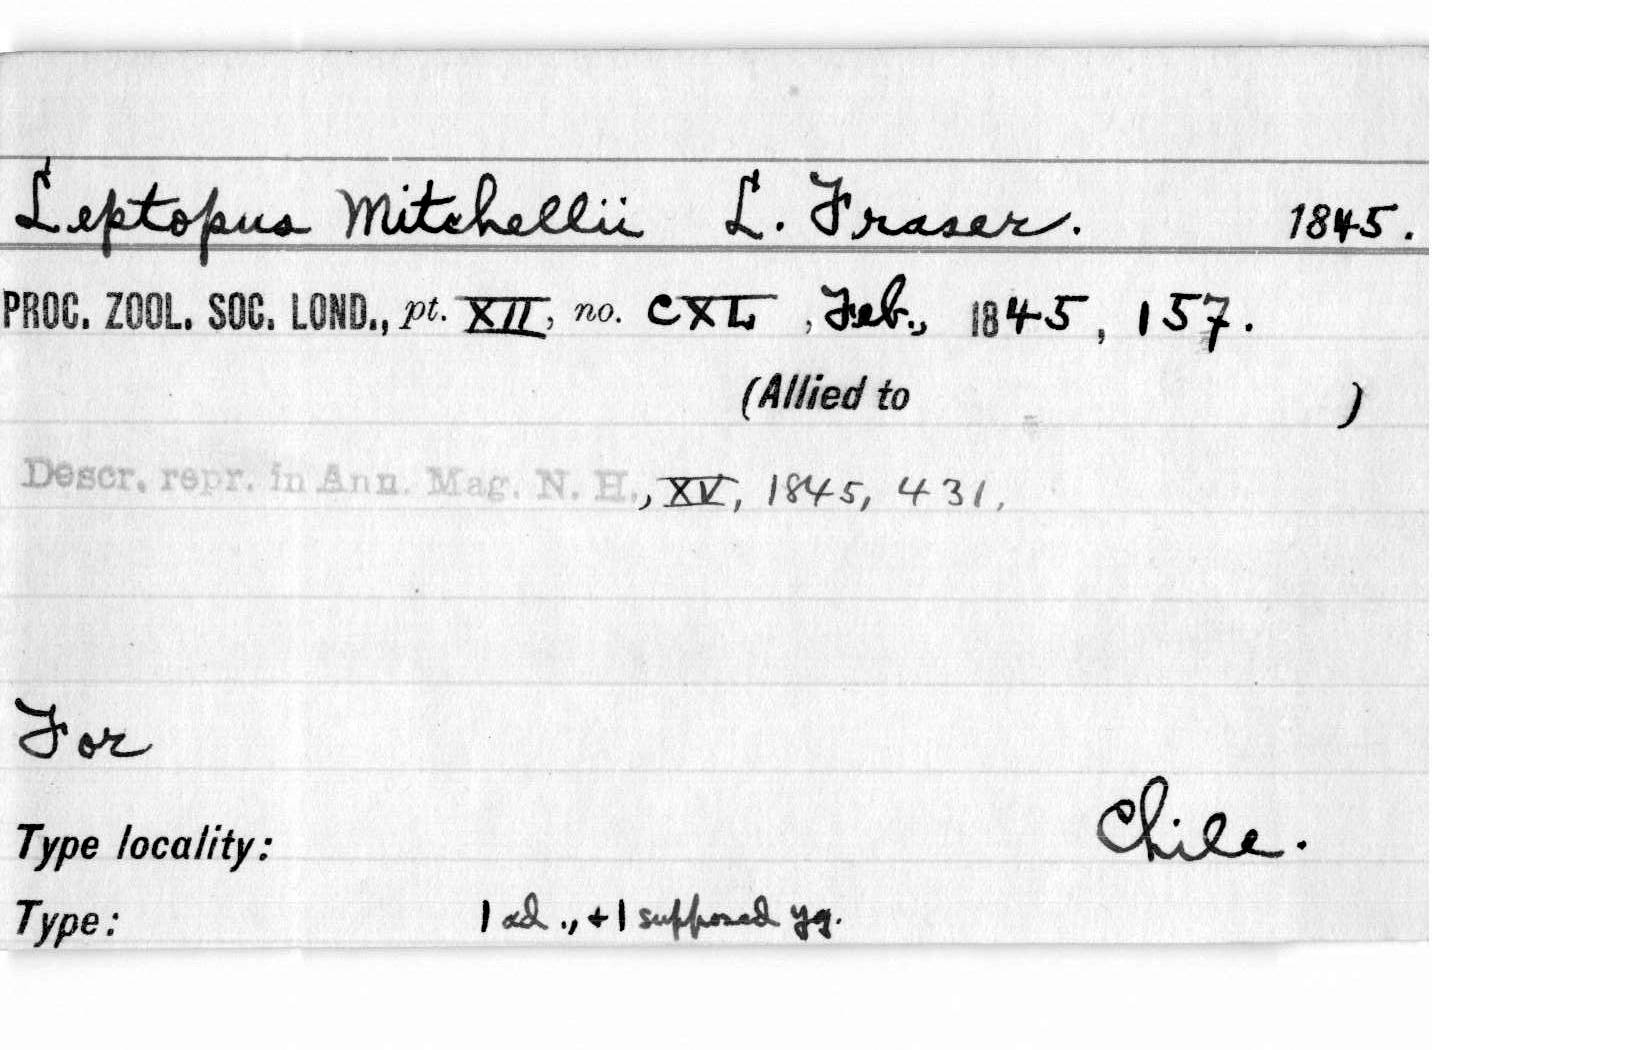 Leptopus Mitchellii L. Fraser. 1845.
PROC. ZOOL. SOC. LOND., pt. XII, no. CXL, Feb., 1845, 157.
(Allied to )
Descr. repr. in Ann. Mag. N. H., XV, 1845, 431.
For
Type locality: Chile.
Type: 1 ad., + 1 supposed yg.